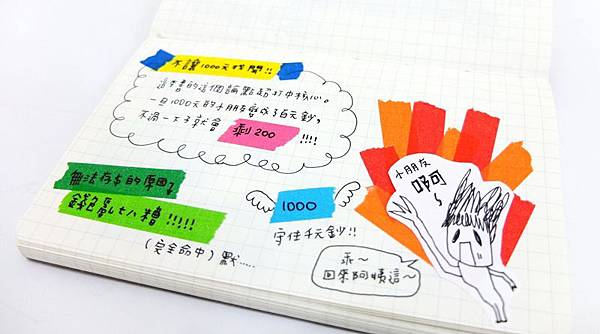 不讓1000元找開!!
這本書的這個論點超打中核心。
一旦1000元的小朋友變成了百元鈔,
不過一下子就會 剩200 !!!!
無法存$的原因?
錢包亂七八糟!!!!!
(完全命中)默.....
1000
守住千元鈔!!
小朋友
啊~
乖~
回來阿姨這~